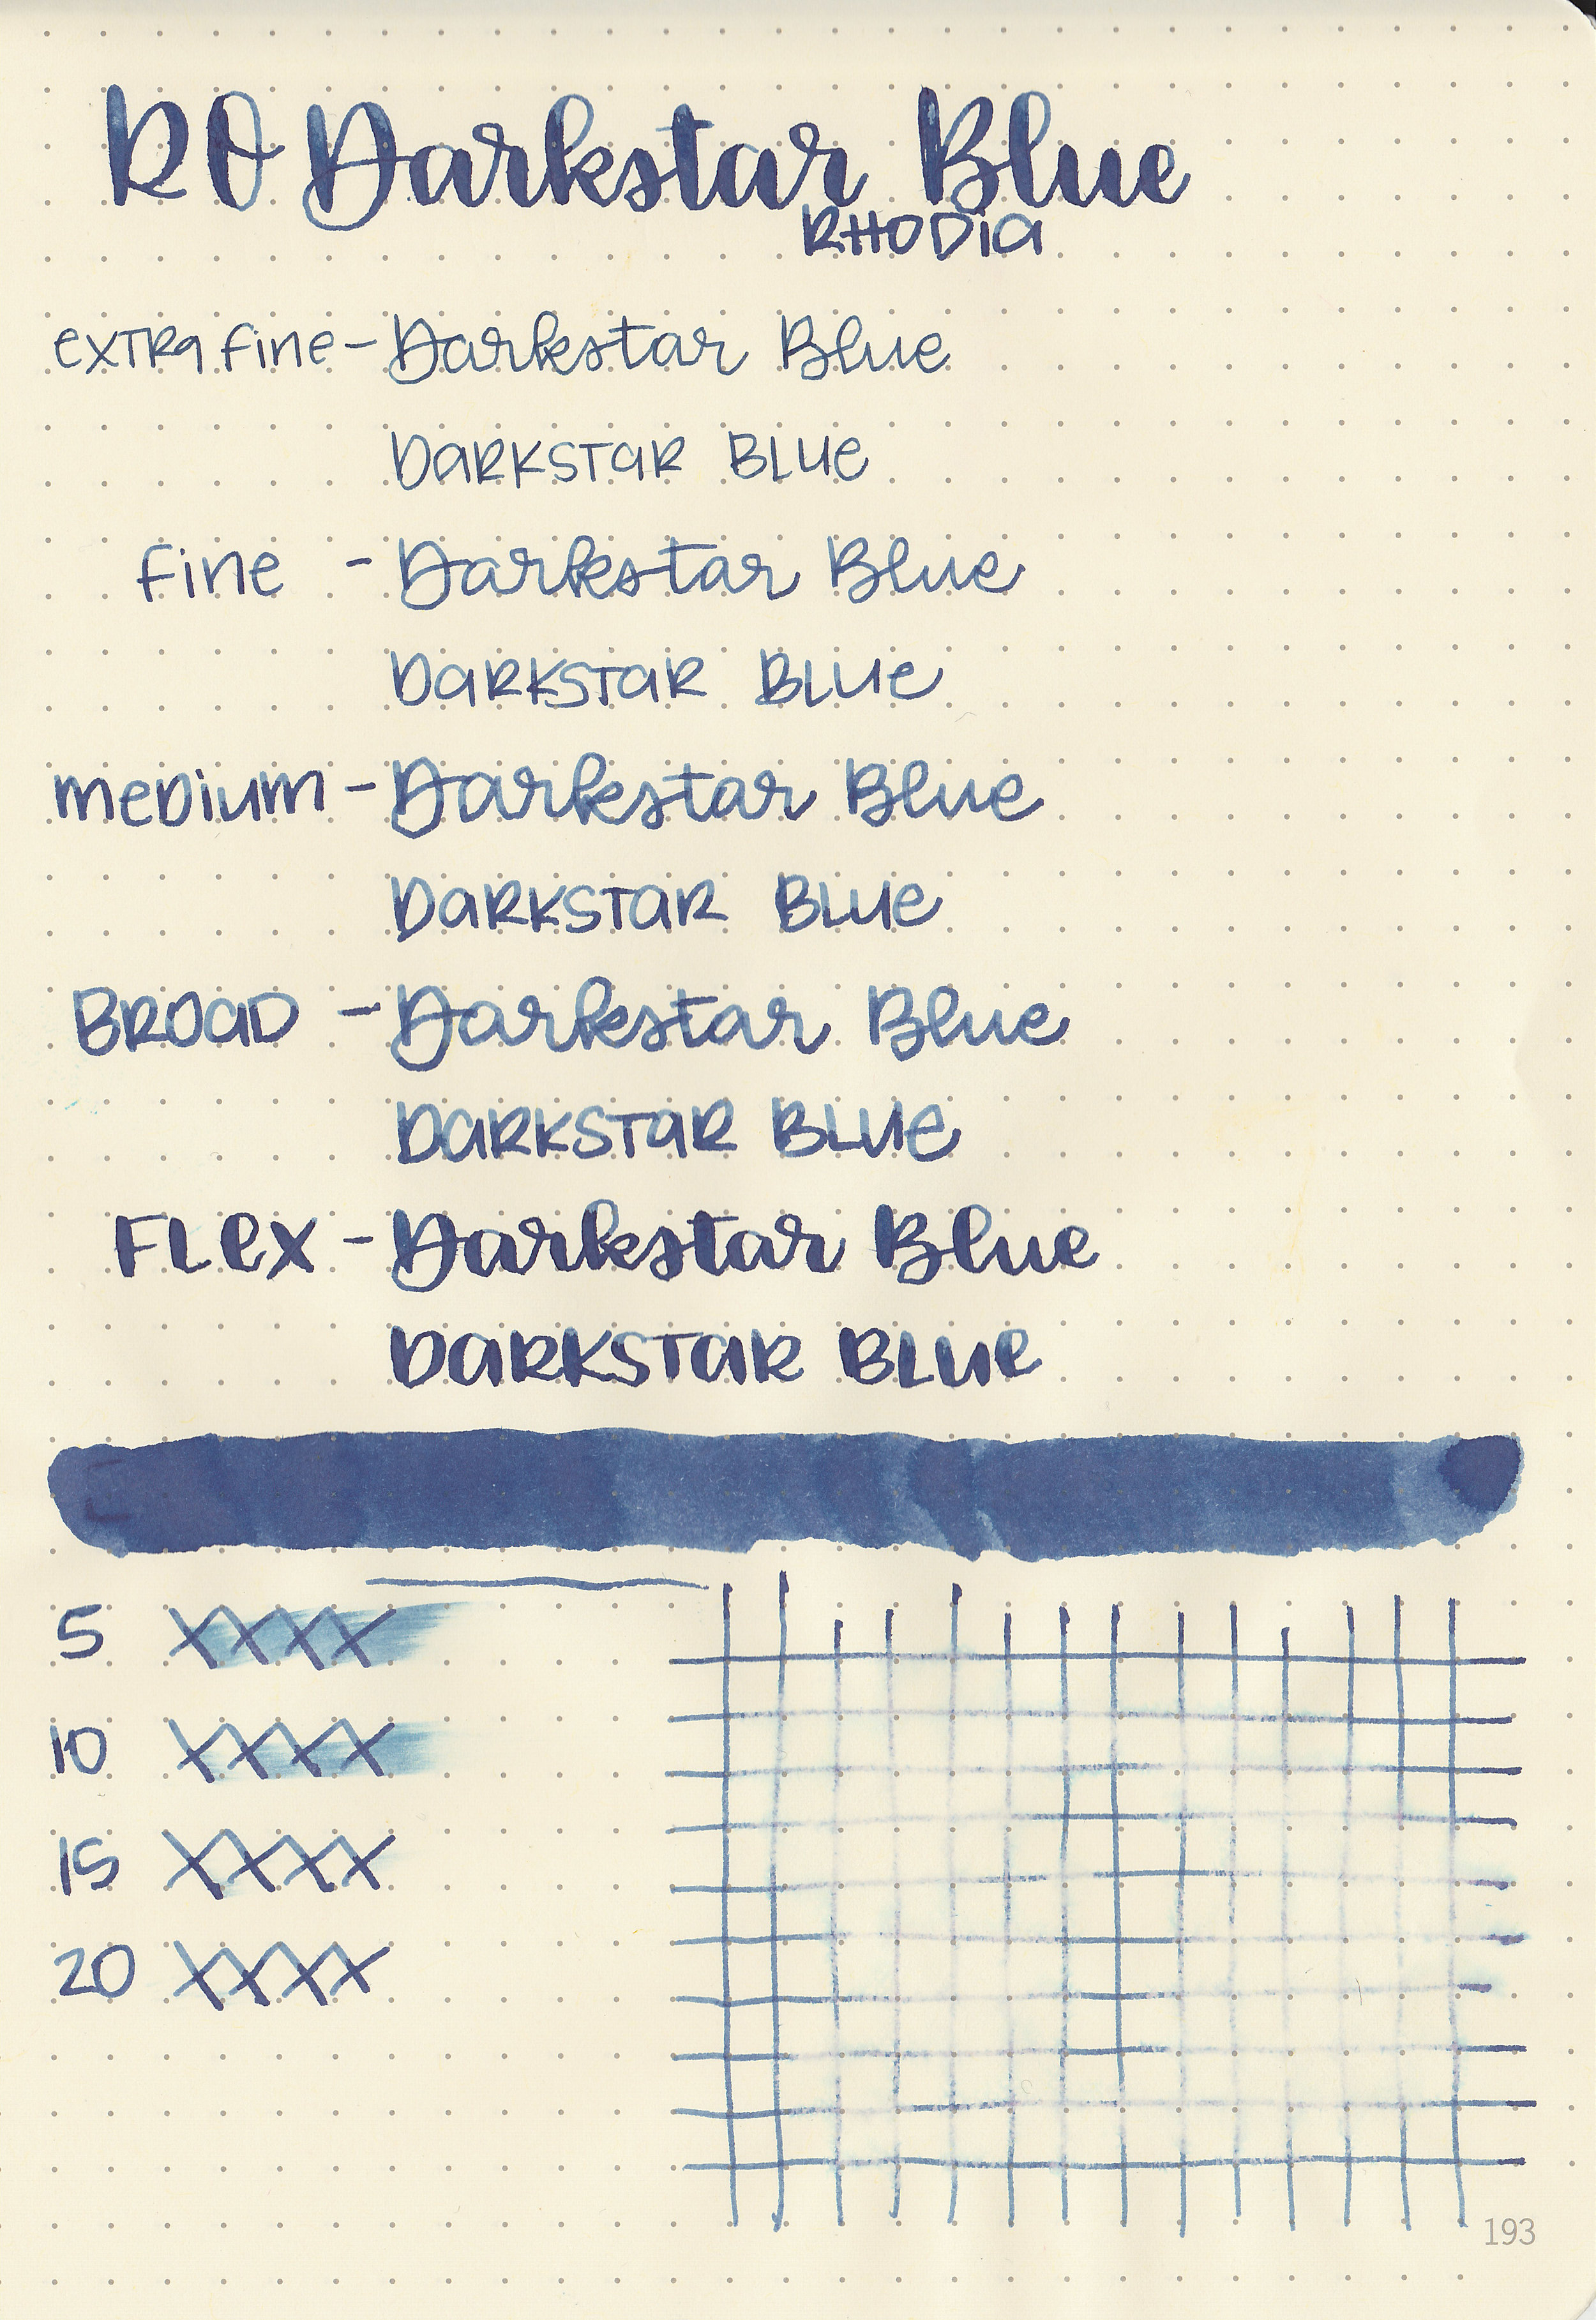 RO Darkstar Blue
RHODIA
extra fine - Darkstar Blue
DARKSTAR BLUE
fine - Darkstar Blue
DARKSTAR BLUE
medium - Darkstar Blue
DARKSTAR BLUE
BROAD - Darkstar Blue
DARKSTAR BLUE
FLEX - Darkstar Blue
DARKSTAR BLUE
5 XXXX
10 XXXX
15 XXXX
20 XXXX
193